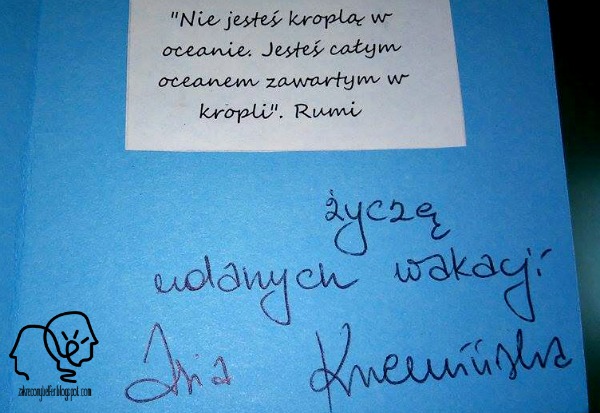 "Nie jesteś kroplą w
oceanie. Jesteś całym
oceanem zawartym w
kropli". Rumi
życzę
udanych wakacji
zakreconybelfer.blogspot.com